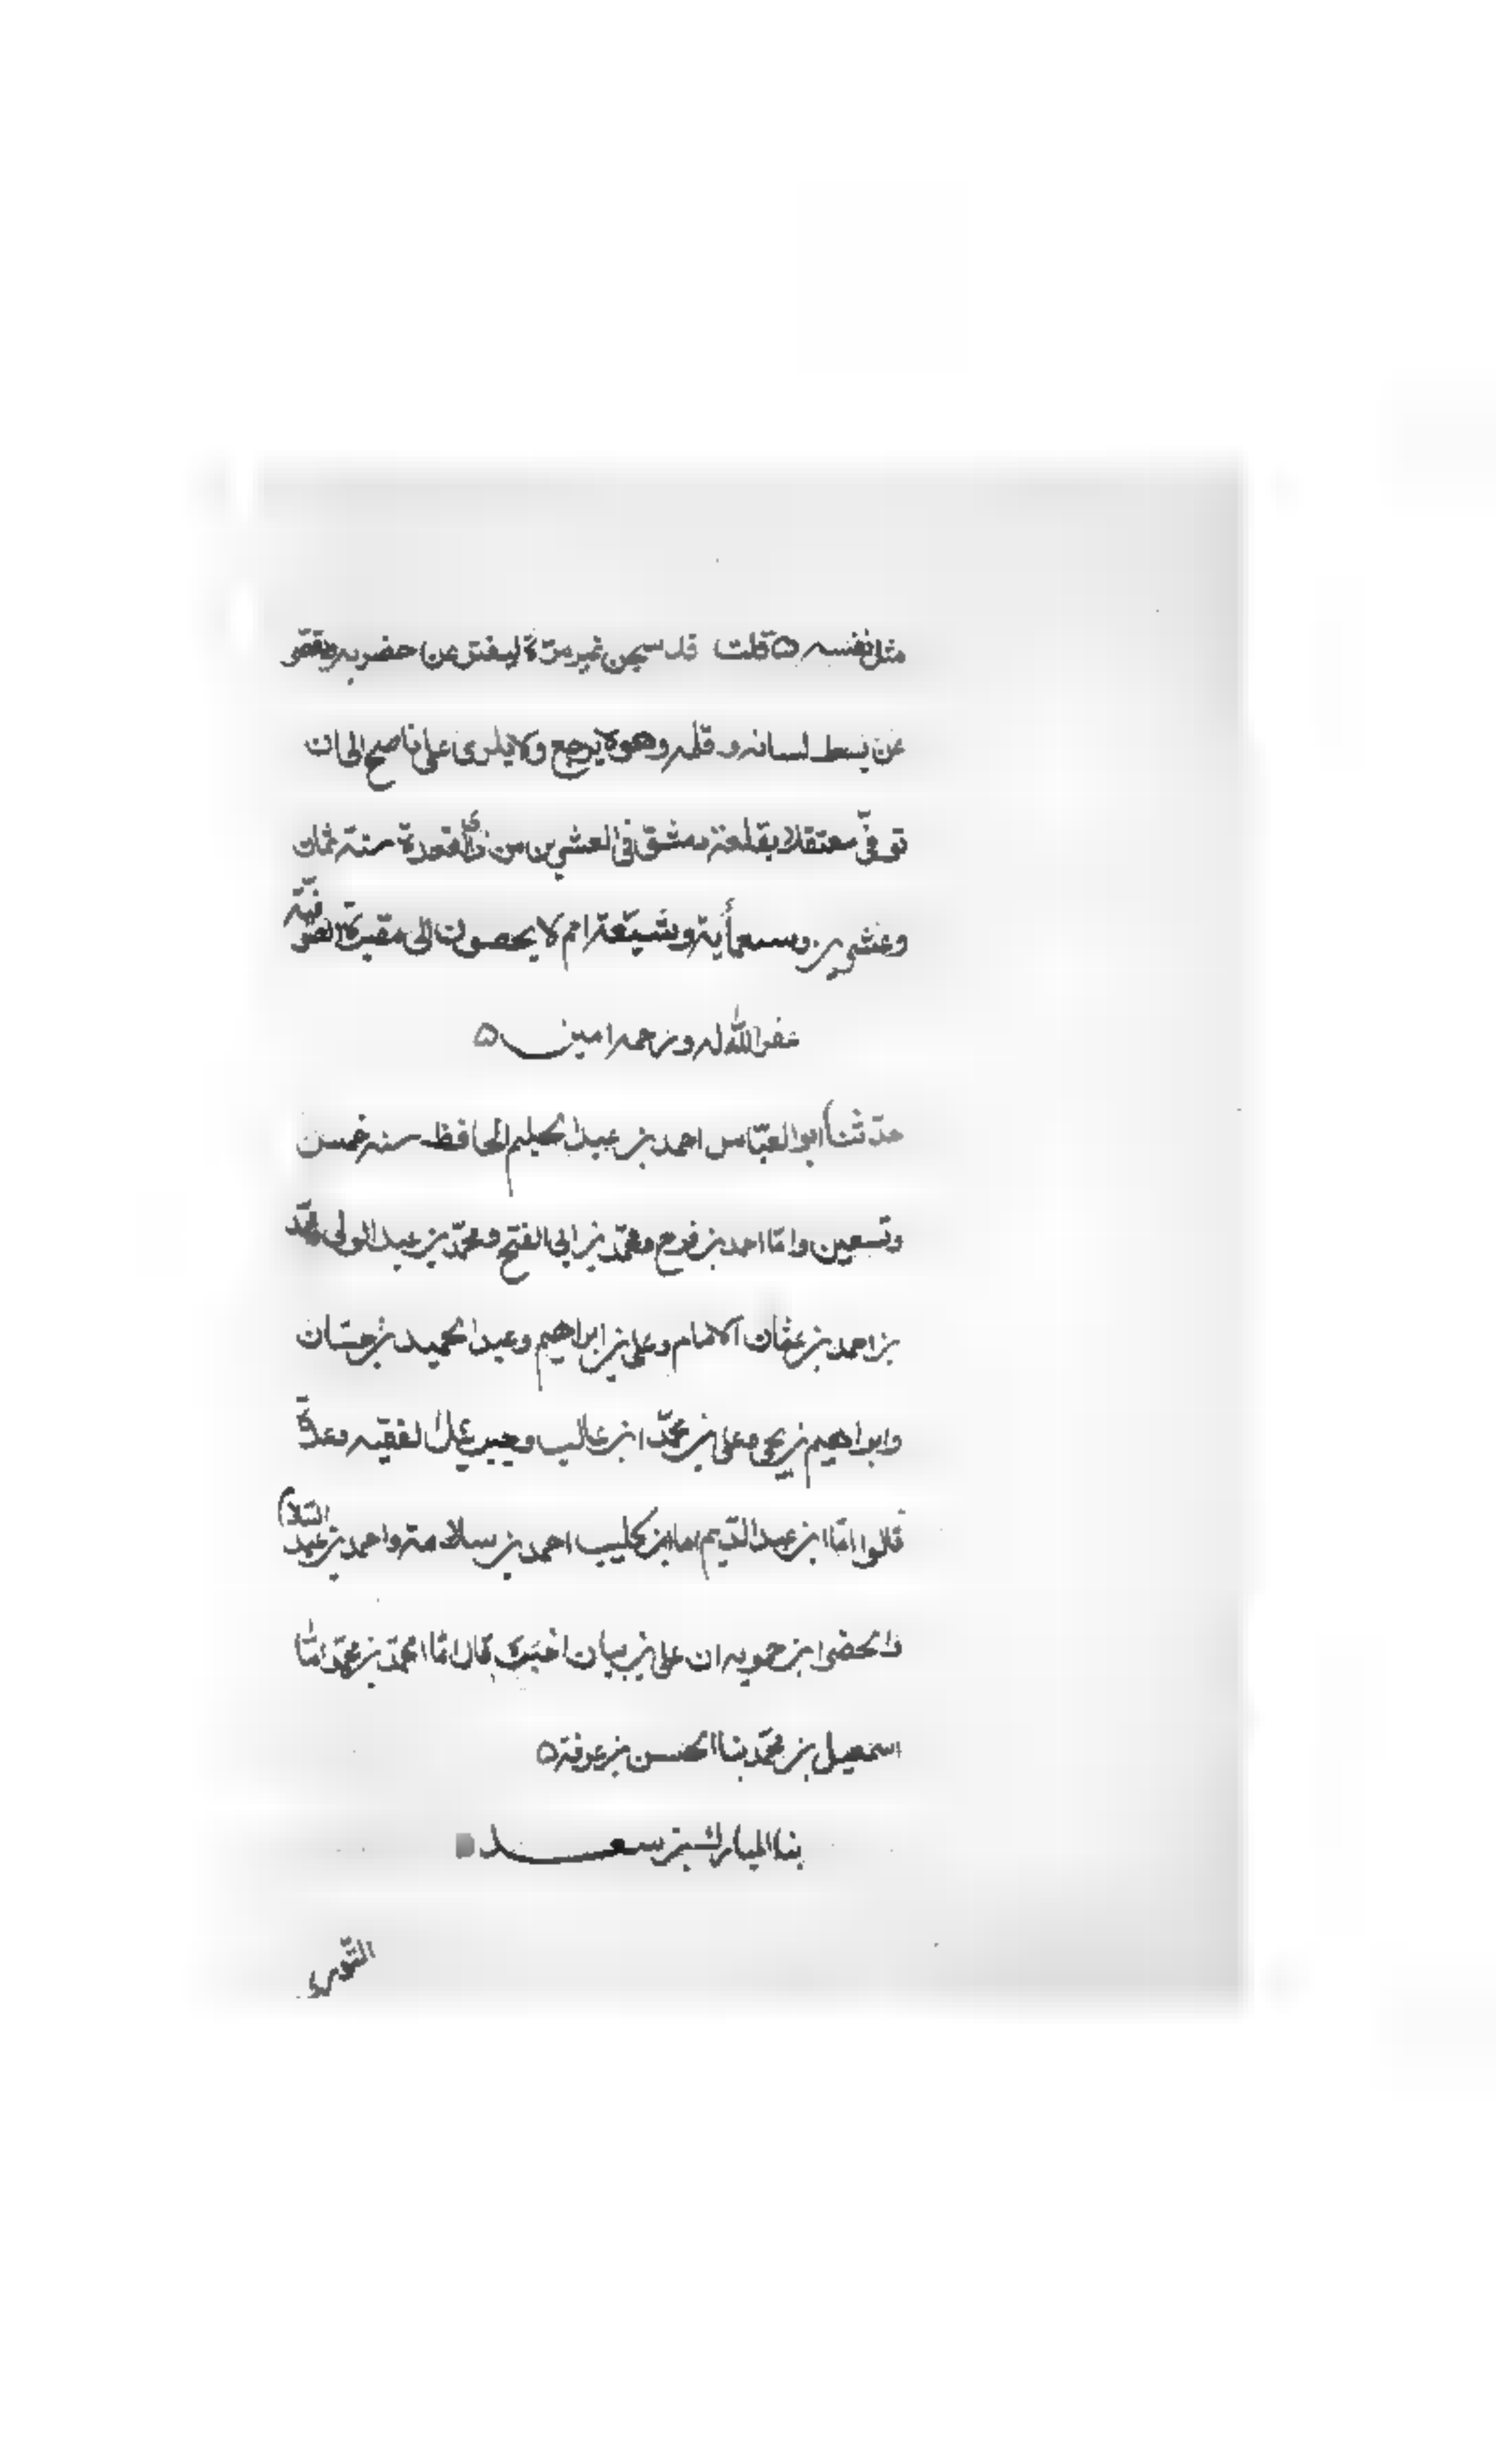 مثل نفسه ۵ قلت قد سجن غير مرة ليفتر عن خصومه ويقصر
عن بسط لسانه وقلمه وهو لا يرجع ولا يلوى على ناصح الى ان
توفّى معتقلا بقلعة دمشق فى العشرين من ذى القعدة سنة ثمان
وعشرين وسبعمأية وشيّعة امم لا يحصون الى مقبرة الصوفيّة
غفر الله له ورحمه امين ۵
حدّثنا ابو العبّاس احمد بن عبد الحليم الحافظ سنه خمس
وتسعين وانا احمد بن فرح ومحمّد بن ابى الفتح ومحمّد بن عبد الولى ومحمّد
بن احمد بن عثمان الامام وعلى بن ابراهيم وعبد الحميد بن حسّان
وابراهيم بن يحيى وعلى بن محمّد ابن غالب وجبريل الفقيه وعدة
قالوا انّا ابن عبد الدّيم اما ابن كليب احمد بن سلامة واحمد بن عبد السّلام
ذا الخضر ابن حمويه ان على بن بيان اخبرك قال انّا محمّد بن محمّد انّا
اسمعيل بن محمّد بنا الحسن بن عرفة ۵
بنا المبارك بن سعد
الثّورى